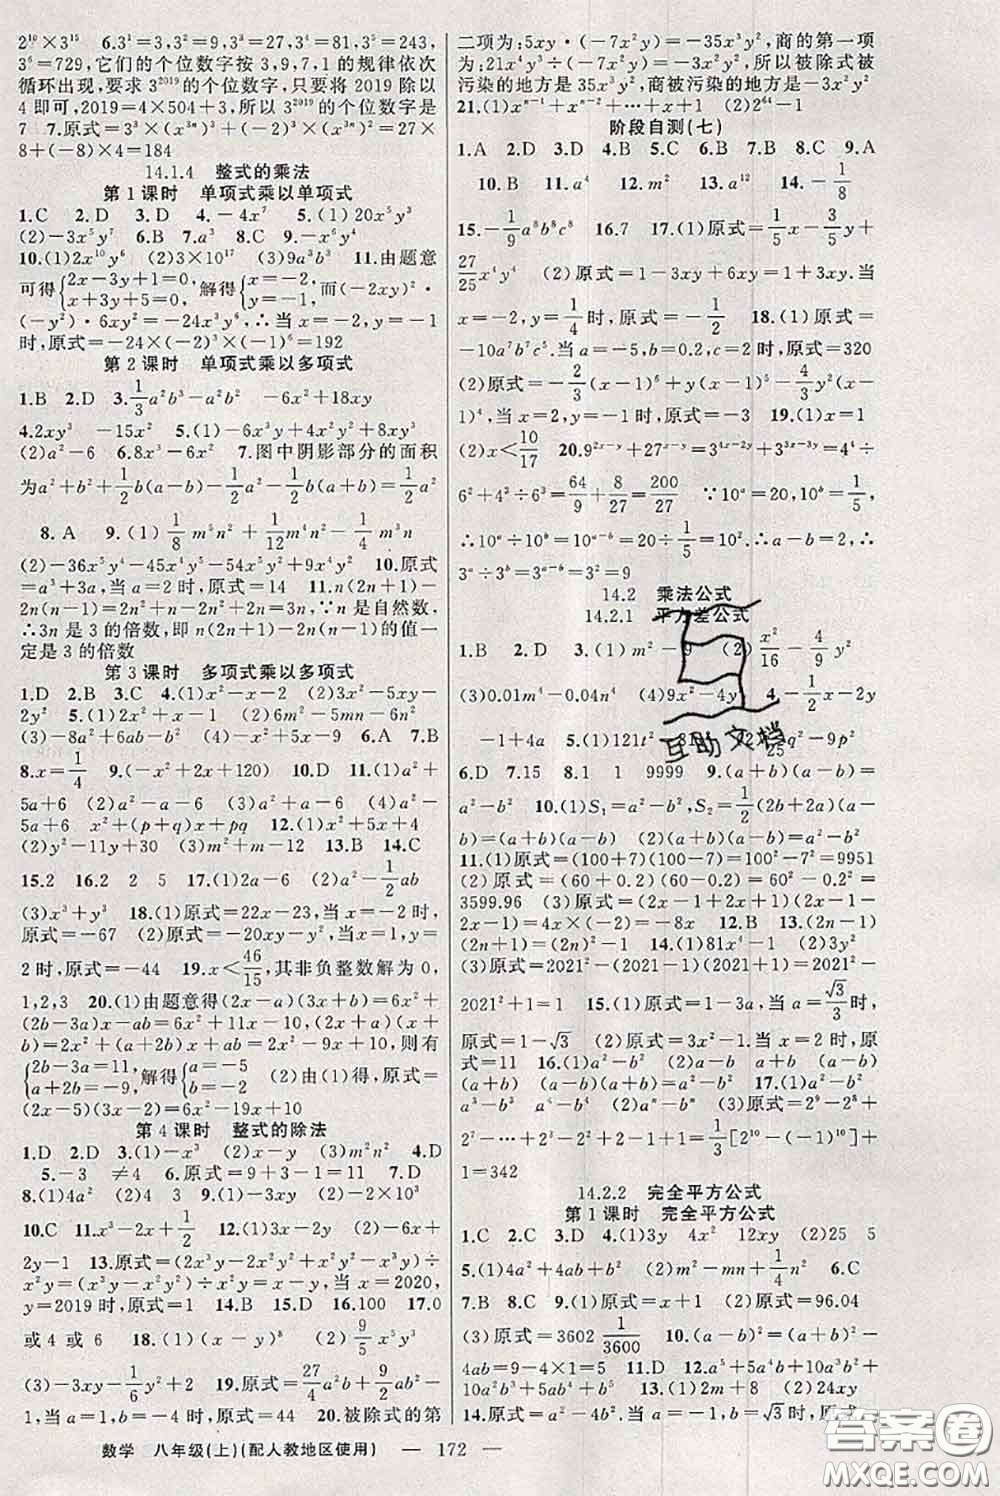 2¹⁰×3¹⁵　6.3¹=3,3²=9,3³=27,3⁴=81,3⁵=243,
3⁶=729,它们的个位数字按3,9,7,1的规律依次
循环出现,要求3²⁰¹⁹的个位数字,只要将2019除以
4即可,2019=4×504+3,所以3²⁰¹⁹的个位数字是
7　7.原式=3³×(x³ⁿ)²+(-2)³×(x³ⁿ)²=27×
8+(-8)×4=184
14.1.4　整式的乘法
第1课时　单项式乘以单项式
1.C　2.D　3.D　4.-4x⁷　5.(1)20x⁵y³
(2)-3x⁵y⁷　6.B　7.a³　8.C　9.-x⁶y⁴
10.(1)2x¹⁰y⁶　(2)3×10¹⁷　(3)9a³b³　11.由题意
可得{2x-3y+1=0, x+3y+5=0, 解得{x=-2, y=-1, 而(-2xy)·
(-y²)·6xy²=-24x³y⁶,∴当x=-2,y=-1
时,原式=-24×(-2)³×(-1)⁶=192
第2课时　单项式乘以多项式
1.B　2.D　3.1/3a²b³-a²b²　-6x²+18xy
4.2xy³　-15x²　5.(1)6x³y+4x²y²+8xy³
(2)a²-6　6.8x³-6x²　7.图中阴影部分的面积
为a²+b²+1/2b(a-b)-1/2a²-1/2b(a+b)=1/2a²
8.A　9.(1)1/8m⁵n²+1/12m⁴n²-1/4m³n
(2)-36x⁵y⁴-45x⁴y⁵-54x⁵y⁵　10.原式
=a³+3a+1,当a=2时,原式=14　11.n(2n+1)-
2n(n-1)=2n²+n-2n²+2n=3n,∵n是自然数,
∴3n是3的倍数,即n(2n+1)-2n(n-1)的值一
定是3的倍数
第3课时　多项式乘以多项式
1.D　2.B　3.C　4.(1)x²-x-2　(2)3x²-5xy-
2y²　5.(1)2x²+x-1　(2)6m²-5mn-6n²
(3)-8a²+6ab-b²　(4)-x²+5x-6　6.A　7.B
8.x=1/4　9.(-x²+2x+120)　10.D　11.(1)a²+
5a+6　(2)a²-a-6　(3)a²+a-6　(4)a²-
5a+6　x²+(p+q)x+pq　12.(1)x²+5x+4
(2)y²-11y+30　(3)m²+m-12　13.B　14.C
15.2　16.2　2　5　17.(1)2a-6　(2)a²-1/2ab
(3)x³+y³　18.(1)原式=22x-23,当x=-2时,
原式=-67　(2)原式=-20xy-y²,当x=1,y=
2时,原式=-44　19.x<46/15,其非负整数解为0,
1,2,3　20.(1)由题意得(2x-a)(3x+b)=6x²+
(2b-3a)x-ab=6x²+11x-10,(2x+a)(x+
b)=2x²+(a+2b)x+ab=2x²-9x+10,则有
{2b-3a=11, a+2b=-9, 解得{a=-5, b=-2　(2)由(1)得,原式=
(2x-5)(3x-2)=6x²-19x+10
第4课时　整式的除法
1.D　2.D　3.(1)-x³　(2)x-y　(3)m²n²　4.D
5.-3　≠4　6.原式=9+3-1=11　7.D
8.(1)4a²　(2)4　3　9.(1)-3xy　(2)-2×10³
10.C　11.x³-2x+1/2　12.(1)3x-2y　(2)-6x+
2y-1　13.原式=(2x³y-2x²y²+x²y²-x³y)÷
x²y=(x³y-x²y²)÷x²y=x-y,当x=2020,
y=2019时,原式=1　14.B　15.D　16.100　17.0
或4或6　18.(1)(x-y)⁸　(2)9/5x⁵y³
(3)-3xy-1/6y²+2　19.原式=27/4a²b+9/4ab²-
1,当a=1,b=-4时,原式=44　20.被除式的第
二项为:5xy·(-7x²y)=-35x³y²,商的第一项
为:21x⁴y³÷(-7x²y)=-3x²y²,所以被除式被
污染的地方是-35x³y²,商被污染的地方是-3x²y²
21.(1)xⁿ⁻¹+xⁿ⁻²+⋯+x+1　(2)2⁶⁴-1
阶段自测(七)
1.A　2.D　3.D　4.B　5.C　6.B　7.C　8.C　9.A
10.B　11.a⁴　12.m²　13.a¹²　14.-1/8
15.-1/9a⁸b⁸c⁸　16.7　17.(1)原式=1/5x-3/5y+
27/25x⁴y⁴　(2)原式=1-3xy+6xy=1+3xy.当
x=-2,y=1/4时,原式=-1/2　18.(1)原式=
-10a⁷b⁷c⁵.当a=-5,b=0.2,c=2时,原式=320
(2)原式=-2/3(x-1)⁶+y(x-1)⁵-4/3y²(x-
1)⁴,当x=2,y=-1时,原式=-3　19.(1)x=1
(2)x<10/17　20.9²ˣ⁻ʸ+27ˣ⁻ʸ=3⁴ˣ⁻²ʸ+3³ˣ⁻³ʸ=4⁴÷
6²+4³÷6³=64/9+8/27=200/27　∵10ᵃ=20,10ᵇ=1/5,
∴10ᵃ÷10ᵇ=10ᵃ⁻ᵇ=20÷1/5=10².∴a-b=2,∴
3ᵃ÷3ᵇ=3ᵃ⁻ᵇ=3²=9
14.2　乘法公式
14.2.1　平方差公式
1.B　2.D　3.(1)m²-9　(2)x²/16-4/9y²
(3)0.01m⁴-0.04n²　(4)9x²-4y　4.-1/2x-2y
-1+4a　5.(1)121t²-81　q²-9p²
6.D　7.15　8.1　1　9999　9.(a+b)(a-b)=
a²-b²　10.(1)S₁=a²-b²,S₂=1/2(2b+2a)(a-
b)=(a+b)(a-b)　(2)(a+b)(a-b)=a²-b²
11.(1)原式=(100+7)(100-7)=100²-7²=9951
(2)原式=(60+0.2)(60-0.2)=60²-0.2²=
3599.96　(3)原式=(2x-1+2x+1)(2x-1-
2x-1)=4x×(-2)=-8x　12.B　13.(2n-1)
(2n+1)=(2n)²-1　14.(1)81x⁴-1　(2)3y²
(3)原式=2021²-(2021-1)(2021+1)=2021²-
2021²+1=1　15.(1)原式=1-3a,当a=√3/3时,
原式=1-√3　(2)原式=3x²-1.当x=2时,原
式=11　16.(1)a²-b²　(2)a-b　a+b　(a-b)
(a+b)　a³-b³　a⁴-b⁴　17.(1)a²-b²
a³-b³　a⁴-b⁴　(2)aⁿ-bⁿ　(3)原式=2⁹-2⁸+
2⁷-⋯+2³-2²+2-1+1=1/3[2¹⁰-(-1)¹⁰]+
1=342
14.2.2　完全平方公式
第1课时　完全平方公式
1.C　2.C　3.D　4.(1)3y　4x²　12xy　(2)25　5
5.(1)4a²+4ab+b²　(2)m²-mn+1/4n²　6.C
7.B　8.C　9.(1)原式=x+1　(2)原式=96.04
(3)原式=3602 1/3600　10.(a-b)²=(a+b)²-
4ab=9-4×1=5　11.D　12.a⁵+5a⁴b+10a³b²
+10a²b³+5ab⁴+b⁵　13.(1)2m+8　(2)24xy
14.原式=a²+b².当a=-√2,b=√3时,原
数学　八年级(上)(配人教地区使用)　— 172 —
互助文档
答案圈
MXQE.COM